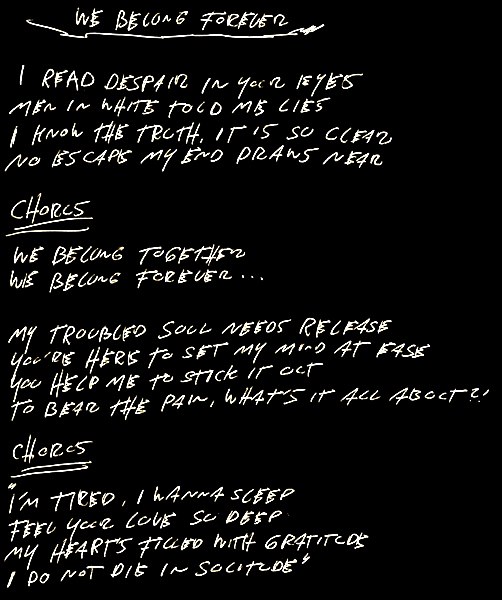 WE BELONG FOREVER
I READ DESPAIR IN YOUR EYES
MEN IN WHITE TOLD ME LIES
I KNOW THE TRUTH, IT IS SO CLEAR
NO ESCAPE MY END DRAWS NEAR
CHORUS
WE BELONG TOGETHER
WE BELONG FOREVER...
MY TROUBLED SOUL NEEDS RELEASE
YOU'RE HERE TO SET MY MIND AT EASE
YOU HELP ME TO STICK IT OUT
TO BEAR THE PAIN, WHAT'S IT ALL ABOUT?!
CHORUS
"I'M TIRED, I WANNA SLEEP
FEEL YOUR LOVE SO DEEP
MY HEART'S FILLED WITH GRATITUDE
I DO NOT DIE IN SOLITUDE"